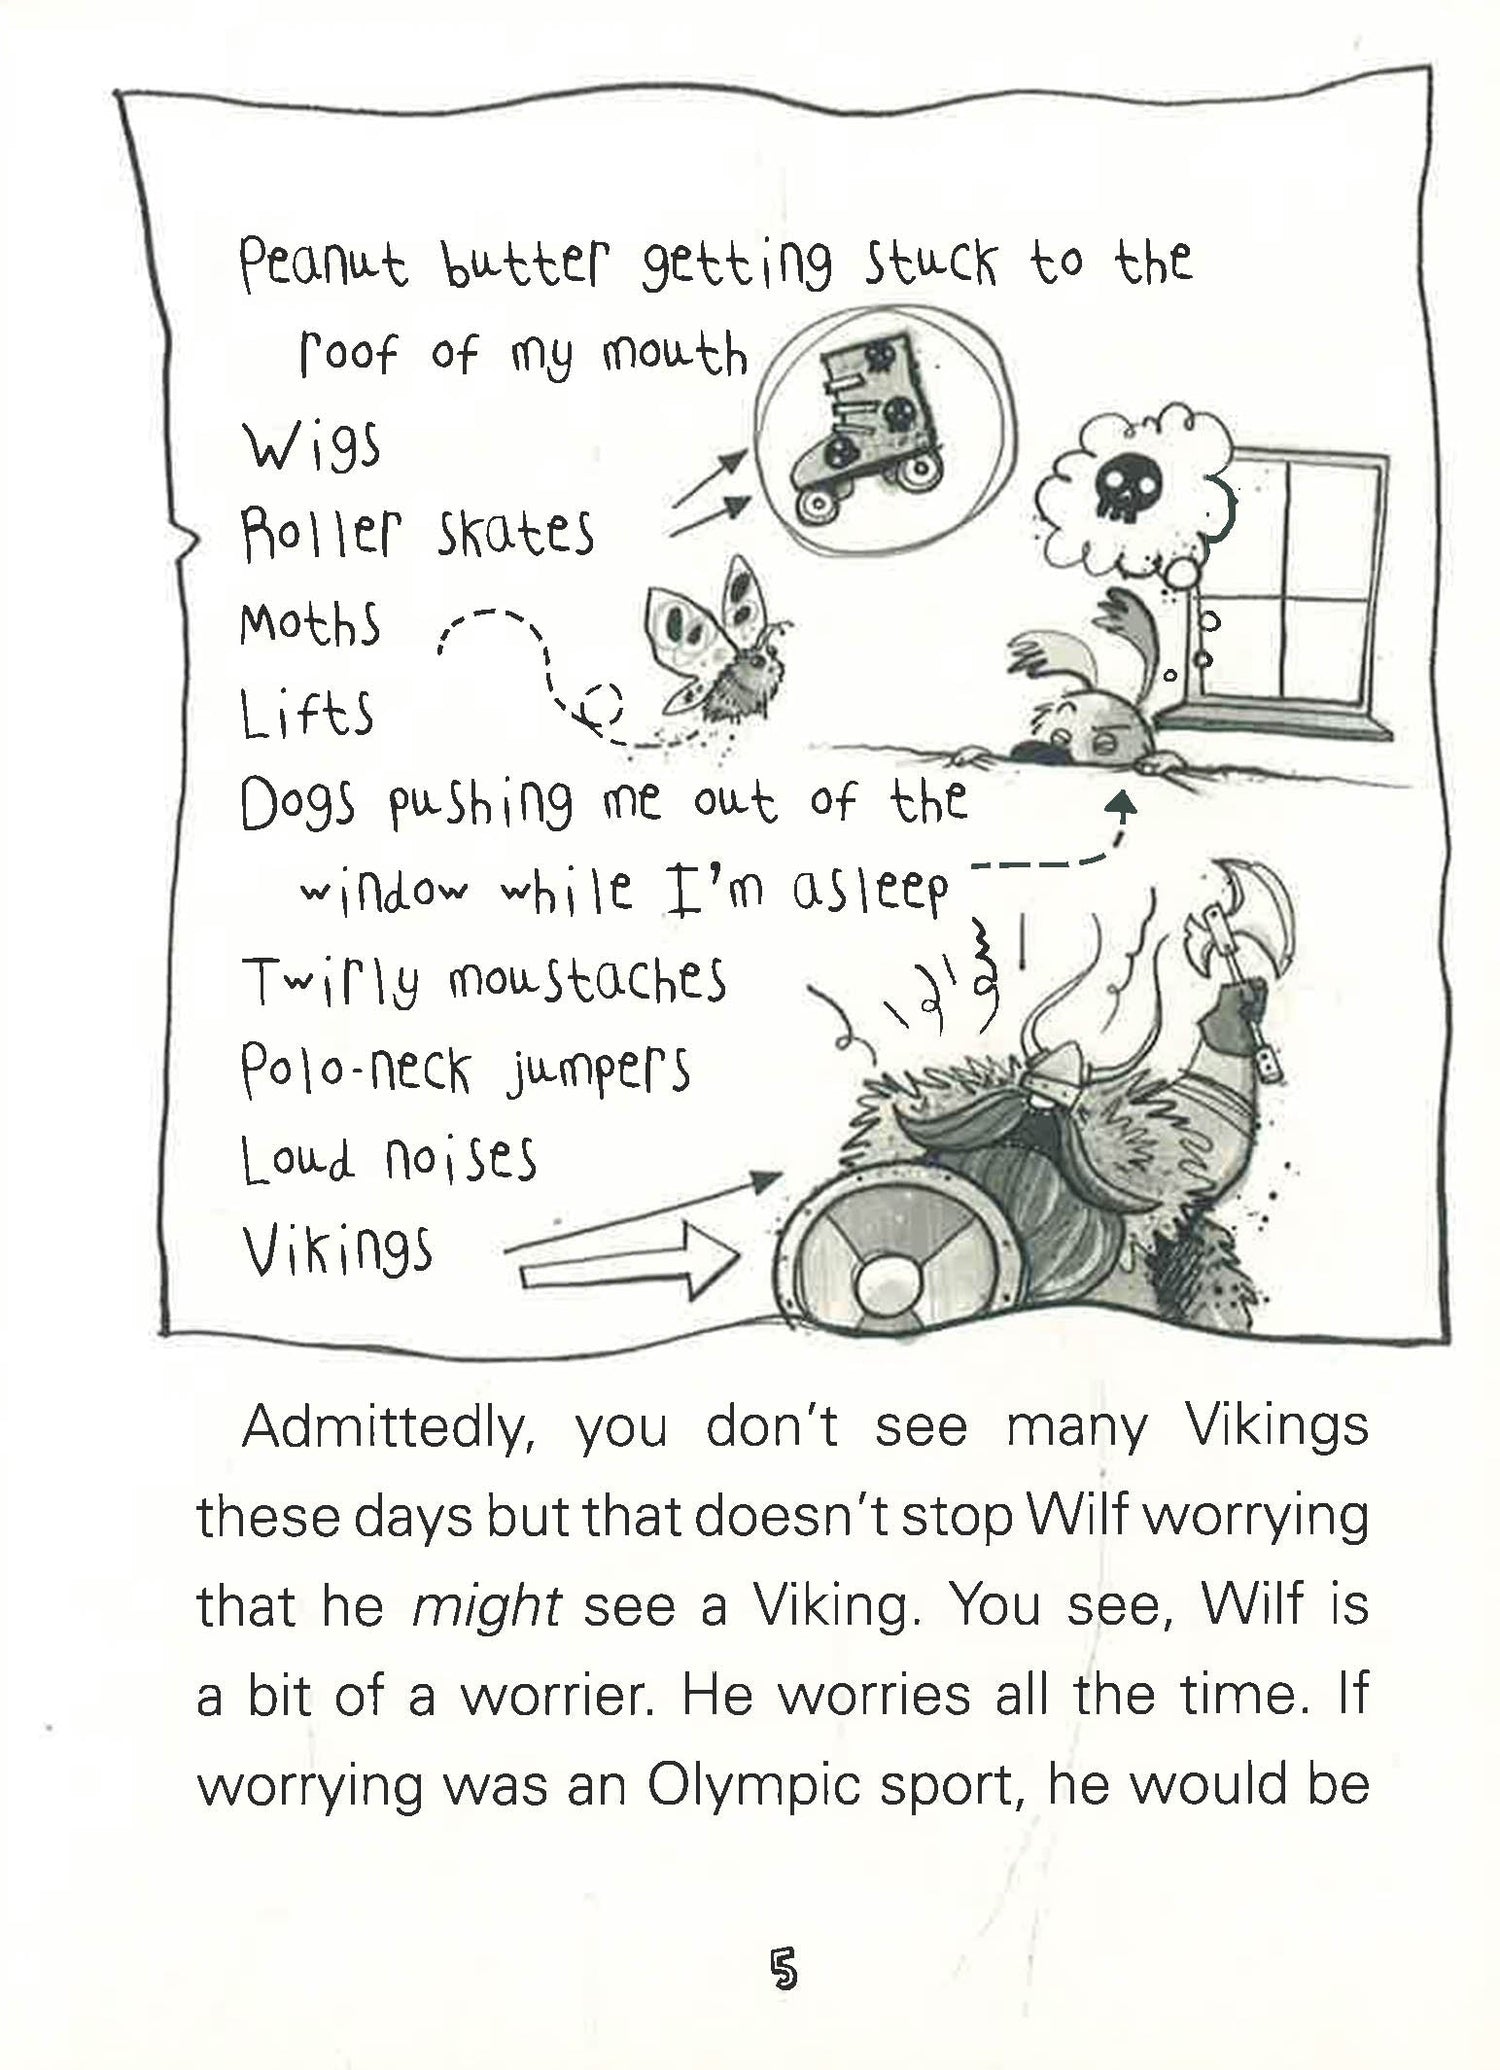 Peanut butter getting stuck to the
roof of my mouth
Wigs
Roller skates
Moths
Lifts
Dogs pushing me out of the
window while I'm asleep
Twirly moustaches
Polo-neck jumpers
Loud noises
Vikings
Admittedly, you don't see many Vikings
these days but that doesn't stop Wilf worrying
that he might see a Viking. You see, Wilf is
a bit of a worrier. He worries all the time. If
worrying was an Olympic sport, he would be
5